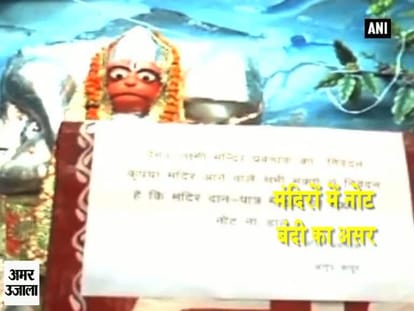 ANI
मन्दिर
कृपया मंदिर आने वाले सभी भक्तों से निवेदन
है कि मंदिर दान-पात्र
नोट ना डाले
मंदिरों में नोट
बंदी का असर
अमर
उजाला